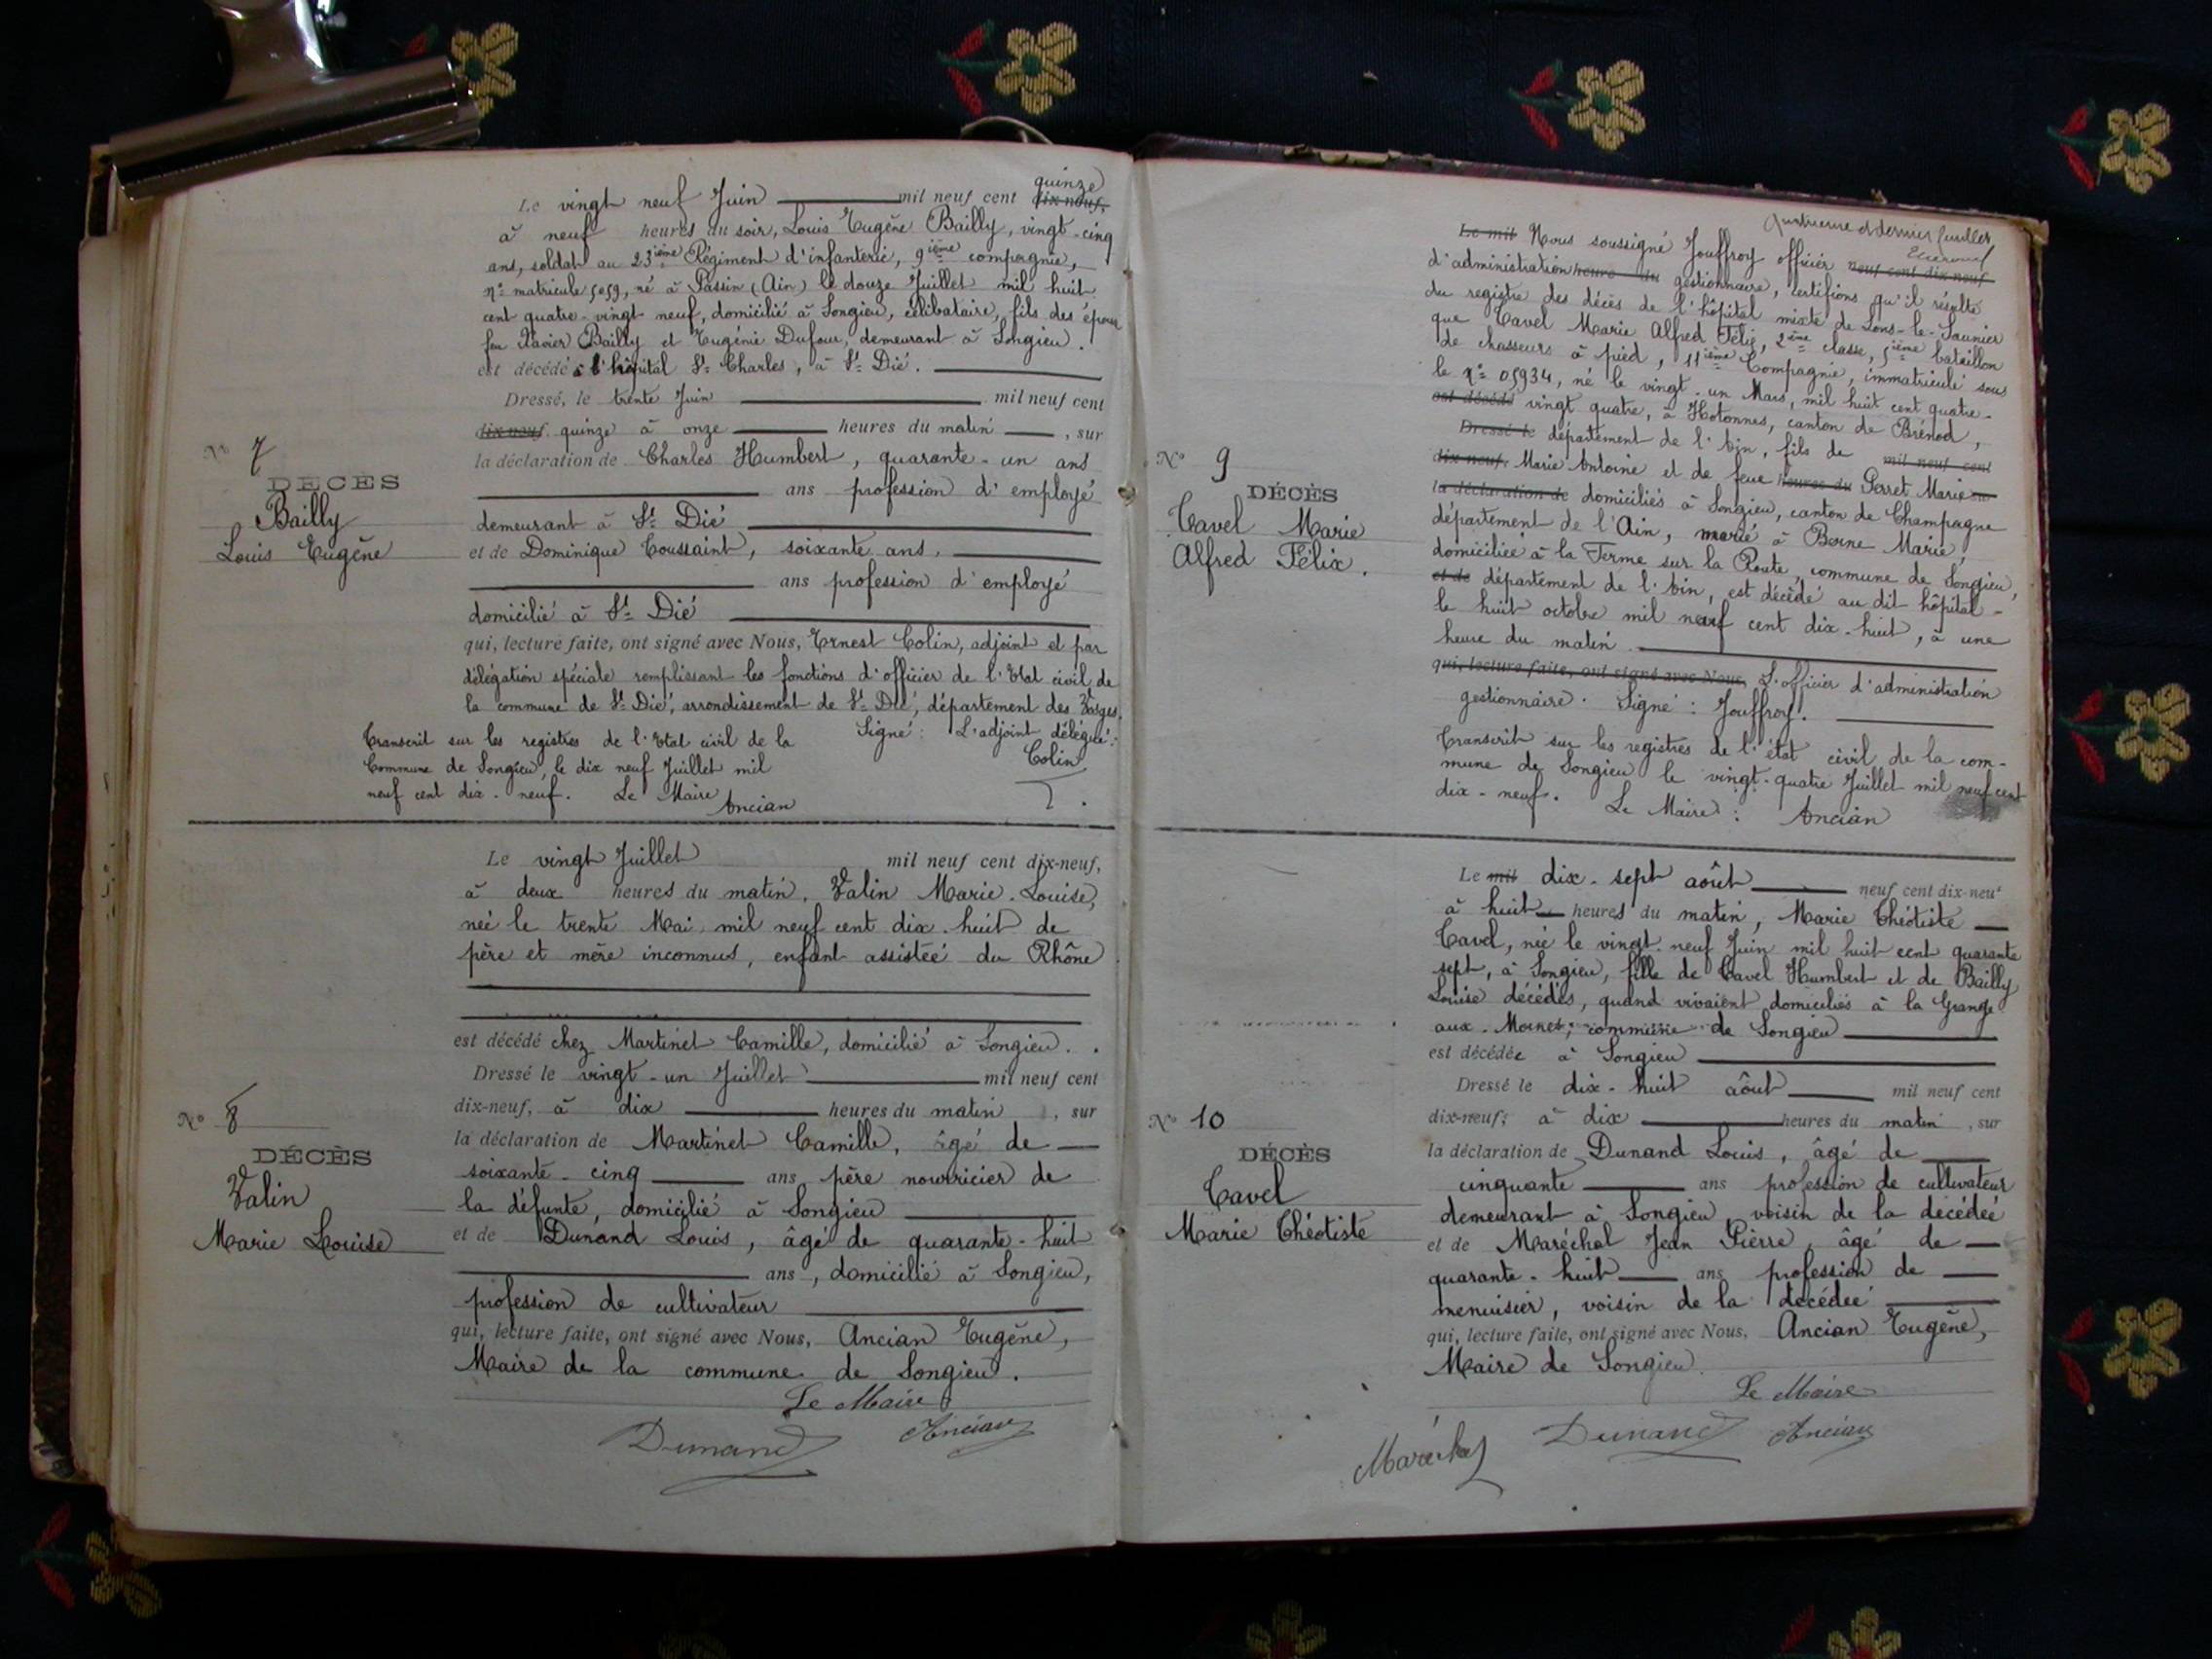 quinze
Le vingt neuf Juin mil neuf cent dix-neuf,
à neuf heures du soir, Louis Eugène Bailly, vingt-cinq
ans, soldat au 23ième Régiment d'infanterie, 9ième compagnie,
No matricule 5059, né à Passin (Ain) le douze Juillet mil huit
cent quatre-vingt neuf, domicilié à Songieu, célibataire, fils des époux
feu Xavier Bailly et Eugénie Dufour, demeurant à Songieu.
est décédé à l'hôpital St Charles, à St Dié.
Dressé, le trente Juin mil neuf cent
dix-neuf. quinze à onze heures du matin, sur
la déclaration de Charles Humbert, quarante-un ans
ans profession d'employé
demeurant à St Dié
et de Dominique Toussaint, soixante ans,
ans profession d'employé
domicilié à St Dié
qui, lecture faite, ont signé avec Nous, Ernest Colin, adjoint et par
délégation spéciale remplissant les fonctions d'officier de l'Etat civil de
la commune de St Dié, arrondissement de St Dié, département des Vosges.
Signé: L'adjoint délégué:
Colin
Transcrit sur les registres de l'Etat civil de la
Commune de Songieu, le dix neuf Juillet mil
neuf cent dix-neuf. Le Maire
Ancian
No 7
DÉCÈS
Bailly
Louis Eugène
Le vingt Juillet mil neuf cent dix-neuf,
à deux heures du matin, Valin Marie-Louise,
née le trente Mai mil neuf cent dix-huit de
père et mère inconnus, enfant assistée du Rhône
est décédé chez Martinet Camille, domicilié à Songieu.
Dressé le vingt-un Juillet mil neuf cent
dix-neuf, à dix heures du matin, sur
la déclaration de Martinet Camille, âgé de
soixante-cinq ans père nourricier de
la défunte, domicilié à Songieu
et de Dunand Louis, âgé de quarante-huit
ans, domicilié à Songieu,
profession de cultivateur
qui, lecture faite, ont signé avec Nous, Ancian Eugène,
Maire de la commune de Songieu.
Le Maire
Dunand Ancian
No 8
DÉCÈS
Valin
Marie Louise
quatrième et dernier feuillet
Le mil Nous soussigné Jouffroy officier neuf cent dix-neuf
d'administration heure du gestionnaire, certifions qu'il résulte
du registre des décès de l'hôpital mixte de Lons-le-Saunier
que Tavel Marie Alfred Félix, 2ème classe, 5ième bataillon
de chasseurs à pied, 11ième Compagnie, immatriculé sous
le No 05934, né le vingt-un Mars, mil huit cent quatre-
est décédé vingt quatre, à Hotonnes, canton de Brénod,
Dressé le département de l'Ain, fils de mil neuf cent
dix-neuf. Marie Antoine et de feue heures du Perret Marie sur
la déclaration de domiciliés à Songieu, canton de Champagne
département de l'Ain, marié à Berne Marie,
domiciliée à la Ferme sur la Route, commune de Songieu,
et de département de l'Ain, est décédé au dit hôpital
le huit octobre mil neuf cent dix-huit, à une
heure du matin.
qui, lecture faite, ont signé avec Nous, L'officier d'administration
gestionnaire. Signé: Jouffroy.
Transcrit sur les registres de l'état civil de la com-
mune de Songieu le vingt-quatre Juillet mil neuf cent
dix-neuf. Le Maire: Ancian
No 9
DÉCÈS
Tavel Marie
Alfred Félix.
Le mil dix-sept août neuf cent dix-neuf
à huit heures du matin, Marie Théotiste
Tavel, née le vingt-neuf Juin mil huit cent quarante
sept, à Songieu, fille de Tavel Humbert et de Bailly
Louise décédés, quand vivaient domiciliés à la Grange
aux-Moines, commune de Songieu
est décédée à Songieu
Dressé le dix-huit août mil neuf cent
dix-neuf, à dix heures du matin, sur
la déclaration de Dunand Louis, âgé de
cinquante ans profession de cultivateur
demeurant à Songieu, voisin de la décédée
et de Maréchal Jean Pierre, âgé de
quarante-huit ans profession de
menuisier, voisin de la décédée
qui, lecture faite, ont signé avec Nous, Ancian Eugène,
Maire de Songieu.
Le Maire
Maréchal Dunand Ancian
No 10
DÉCÈS
Tavel
Marie Théotiste